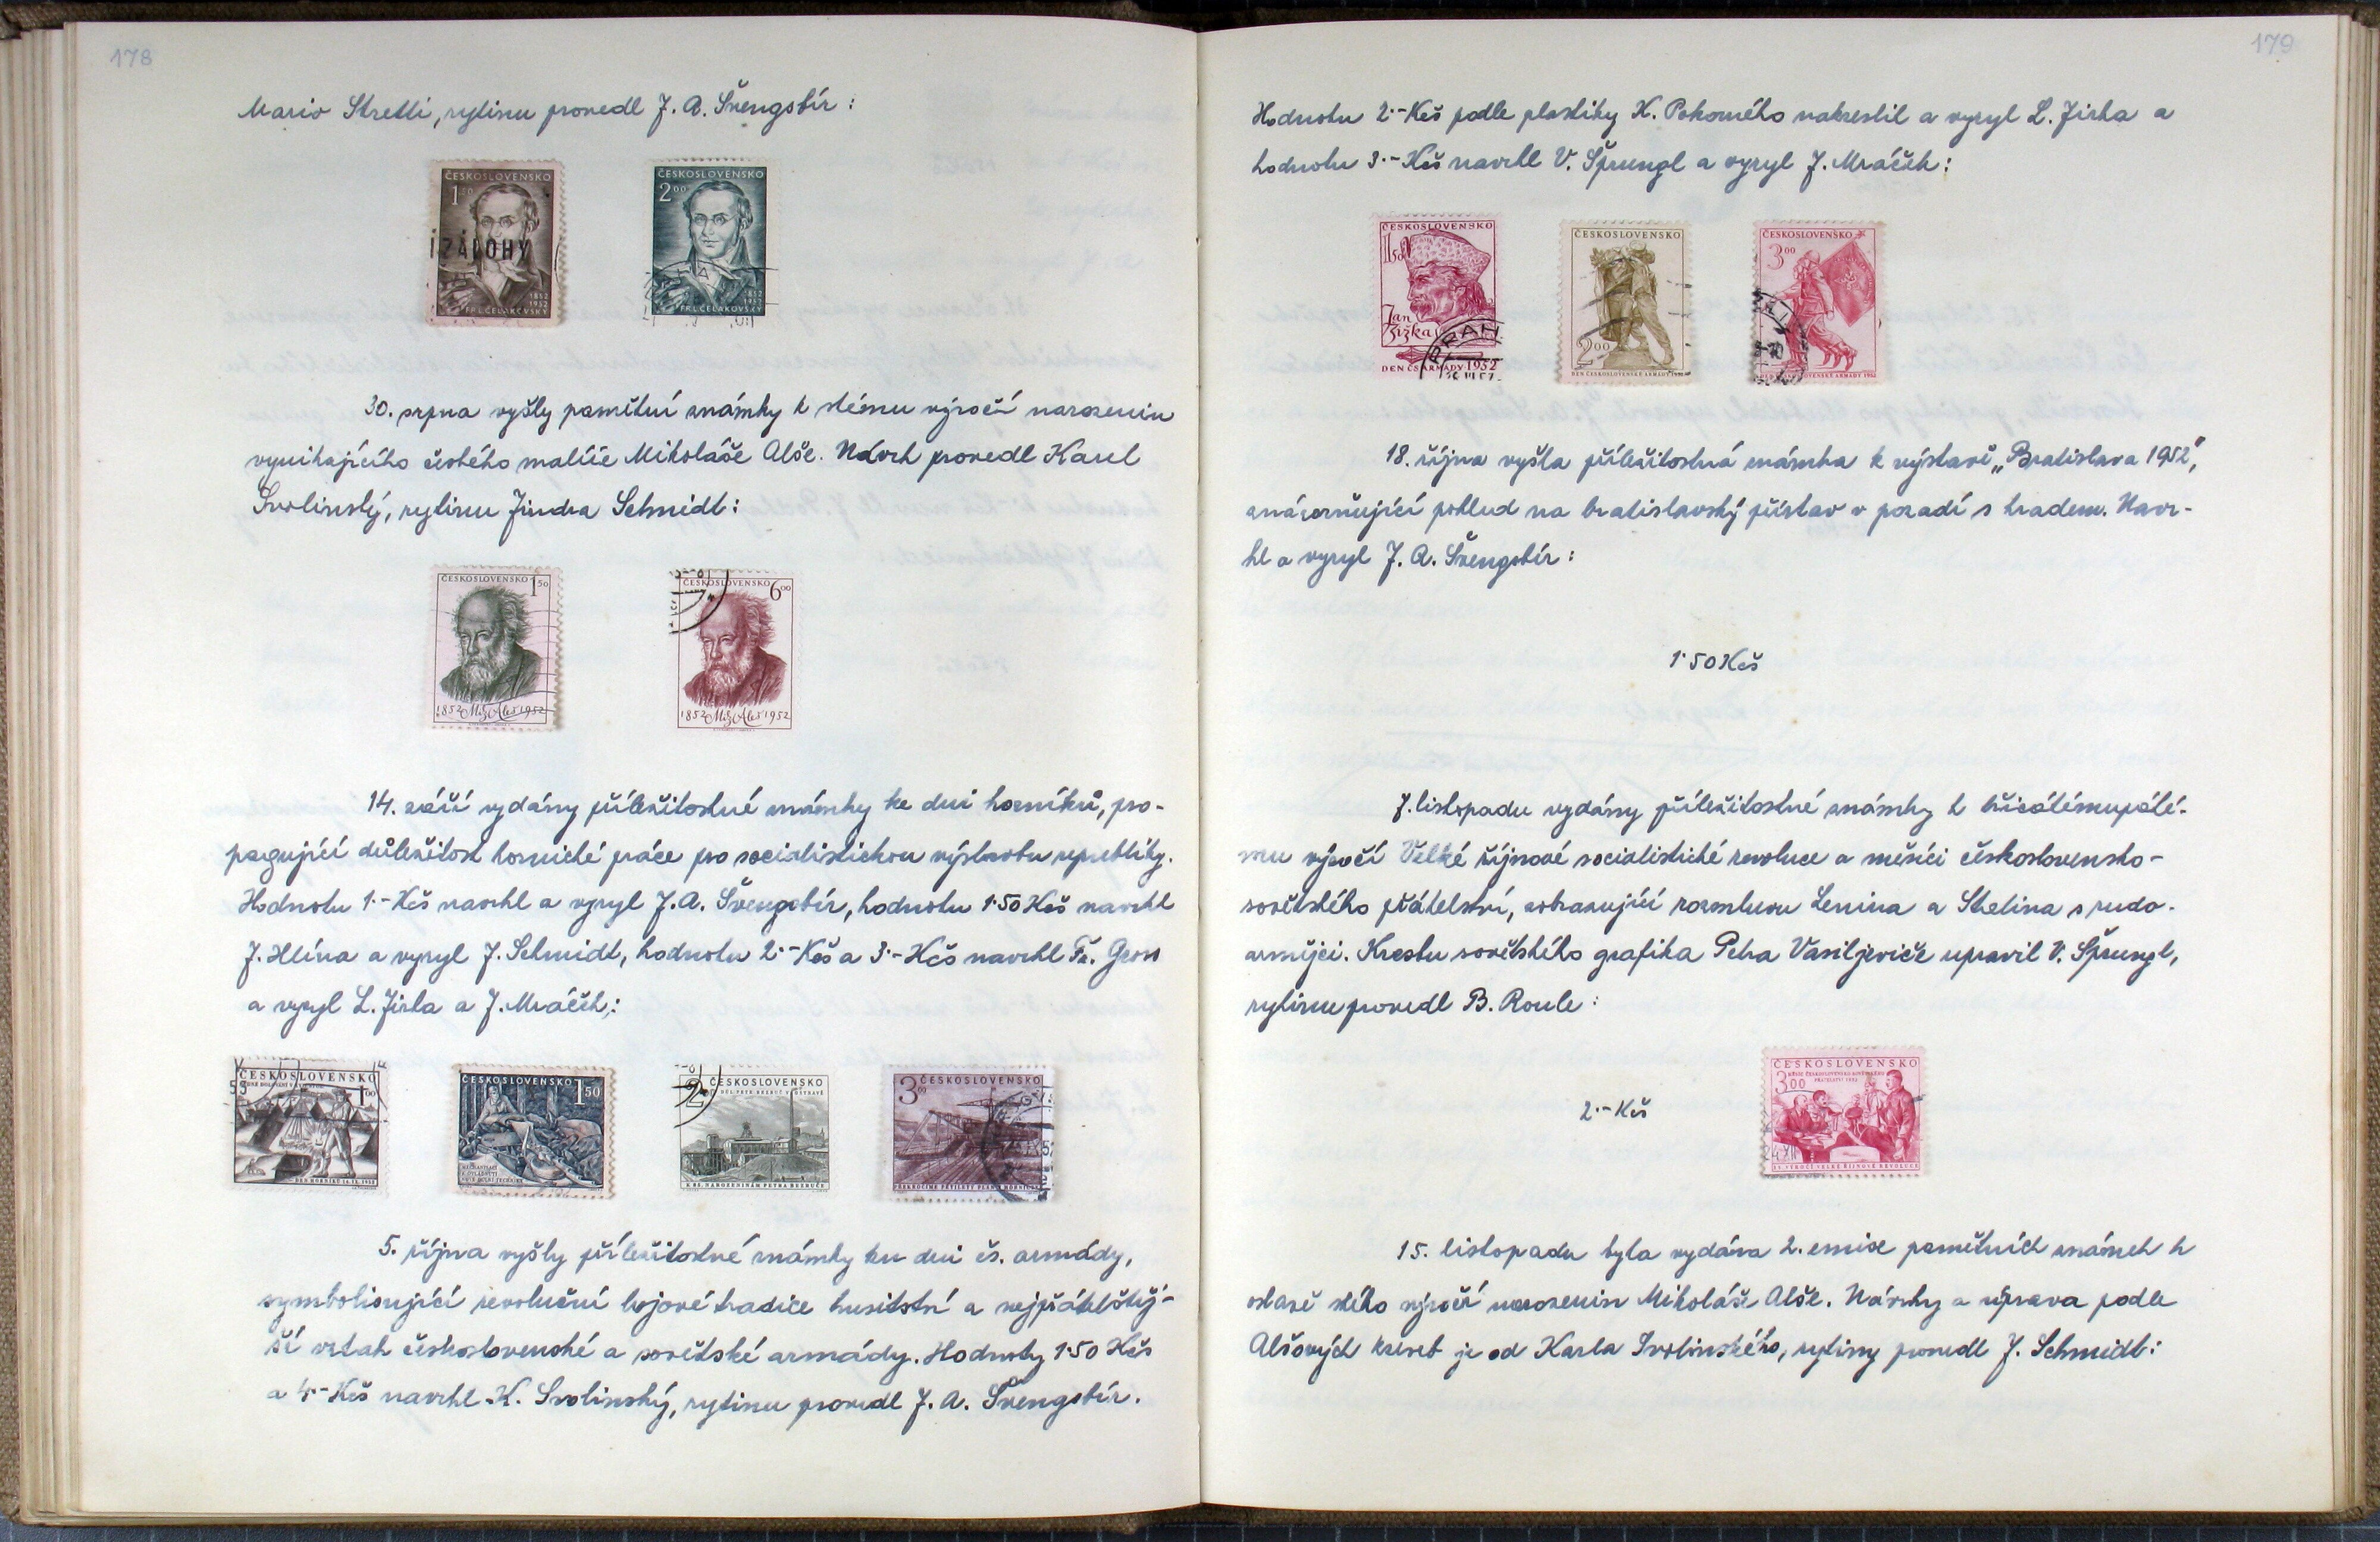 178
Mario Stretti, rytinu provedl J. A. Švengsbír :
ČESKOSLOVENSKO
1 50
ÍZÁLOHY
1852
1952
FR.L.ČELAKOVSKÝ
ČESKOSLOVENSKO
2 00
1852
1952
FR.L.ČELAKOVSKÝ
30. srpna vyšly pamětní známky k stému výročí narozenin
vynikajícího českého malíře Mikoláše Alše. Návrh provedl Karel
Svolinský, rytinu Jindra Schmidt :
ČESKOSLOVENSKO 1 50
1852 Mik. Aleš 1952
ČESKOSLOVENSKO 6 00
1852 Mik. Aleš 1952
14. září vydány příležitostné známky ke dni horníků, pro-
pagující důležitost hornické práce pro socialistickou výstavbu republiky.
Hodnotu 1·- Kčs navrhl a vyryl J. A. Švengsbír, hodnotu 1·50 Kčs navrhl
J. Hlína a vyryl J. Schmidt, hodnotu 2·- Kčs a 3·- Kčs navrhl Fr. Gross
a vyryl L. Jirka a J. Mráček :
ČESKOSLOVENSKO
1 00
DEN HORNÍKŮ 14.IX.1952
ČESKOSLOVENSKO 1 50
ČESKOSLOVENSKO
2
DŮL PETR BEZRUČ V OSTRAVĚ
K 85. NAROZENINÁM PETRA BEZRUČE
3 00 ČESKOSLOVENSKO
5. října vyšly příležitostné známky ku dni čs. armády,
symbolisující revoluční bojové tradice husitství a nejpřátelštěj-
ší vztah československé a sovětské armády. Hodnoty 1·50 Kčs
a 4·- Kčs navrhl K. Svolinský, rytinu provedl J. A. Švengsbír.
179
Hodnotu 2·- Kčs podle plastiky K. Pokorného nakreslil a vyryl L. Jirka a
hodnotu 3·- Kčs navrhl V. Šprungl a vyryl J. Mráček :
ČESKOSLOVENSKO
1 50
Jan
Žižka
PRAH
DEN ČS ARMÁDY 1952
ČESKOSLOVENSKO
2 00
DEN ČESKOSLOVENSKÉ ARMÁDY 1952
ČESKOSLOVENSKO
3 00
DEN ČESKOSLOVENSKÉ ARMÁDY 1952
18. října vyšla příležitostná známka k výstavě „Bratislava 1952",
znázorňující pohled na bratislavský přístav v pozadí s hradem. Navr-
hl a vyryl J. A. Švengsbír :
1·50 Kčs
7. listopadu vydány příležitostné známky k třicátémupáté-
mu výročí Velké říjnové socialistické revoluce a měsíci československo-
sovětského přátelství, zobrazující rozmluvu Lenina a Stalina s rudo-
armějci. Kresbu sovětského grafika Petra Vasiljeviče upravil V. Šprungl,
rytinu provedl B. Roule :
2·- Kčs
ČESKOSLOVENSKO
3 00
MĚSÍC ČESKOSLOVENSKO-SOVĚTSKÉHO
PŘÁTELSTVÍ 1952
24 XII
35. VÝROČÍ VELKÉ ŘÍJNOVÉ REVOLUCE
15. listopadu byla vydána 2. emise pamětních známek k
oslavě stého výročí narozenin Mikoláše Alše. Návrhy a úprava podle
Alšových kreseb je od Karla Svolinského, rytiny provedl J. Schmidt :